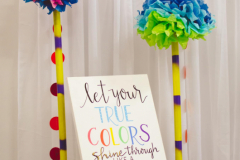 let your
TRUE
COLORS
shine through